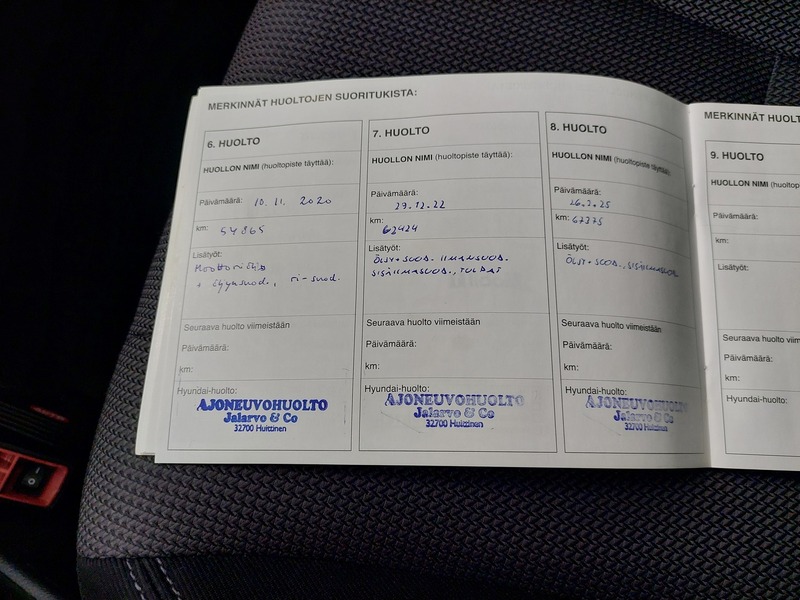 MERKINNÄT HUOLTOJEN SUORITUKISTA:
6. HUOLTO
HUOLLON NIMI (huoltopiste täyttää):
Päivämäärä: 10.11. 2020
km: 54865
Lisätyöt:
Moottoriöljy
+ öljynsuod., ri-suod.
Seuraava huolto viimeistään
Päivämäärä:
km:
Hyundai-huolto:
AJONEUVOHUOLTO
Jalarvo & Co
32700 Huittinen
7. HUOLTO
HUOLLON NIMI (huoltopiste täyttää):
Päivämäärä:
29.12.22
km:
62424
Lisätyöt:
ÖLJY+SUOD. ILMANSUOD.
SISÄILMASUOD., TULPAT
Seuraava huolto viimeistään
Päivämäärä:
km:
Hyundai-huolto:
AJONEUVOHUOLTO
Jalarvo & Co
32700 Huittinen
8. HUOLTO
HUOLLON NIMI (huoltopiste täyttää):
Päivämäärä:
26.2.25
km: 67375
Lisätyöt:
ÖLJY+SUOD., SISÄILMASUOD.
Seuraava huolto viimeistään
Päivämäärä:
km:
Hyundai-huolto:
AJONEUVOHUOLTO
Jalarvo & Co
32700 Huittinen
MERKINNÄT HUOLT
9. HUOLTO
HUOLLON NIMI (huoltop
Päivämäärä:
km:
Lisätyöt:
Seuraava huolto viim
Päivämäärä:
km:
Hyundai-huolto: